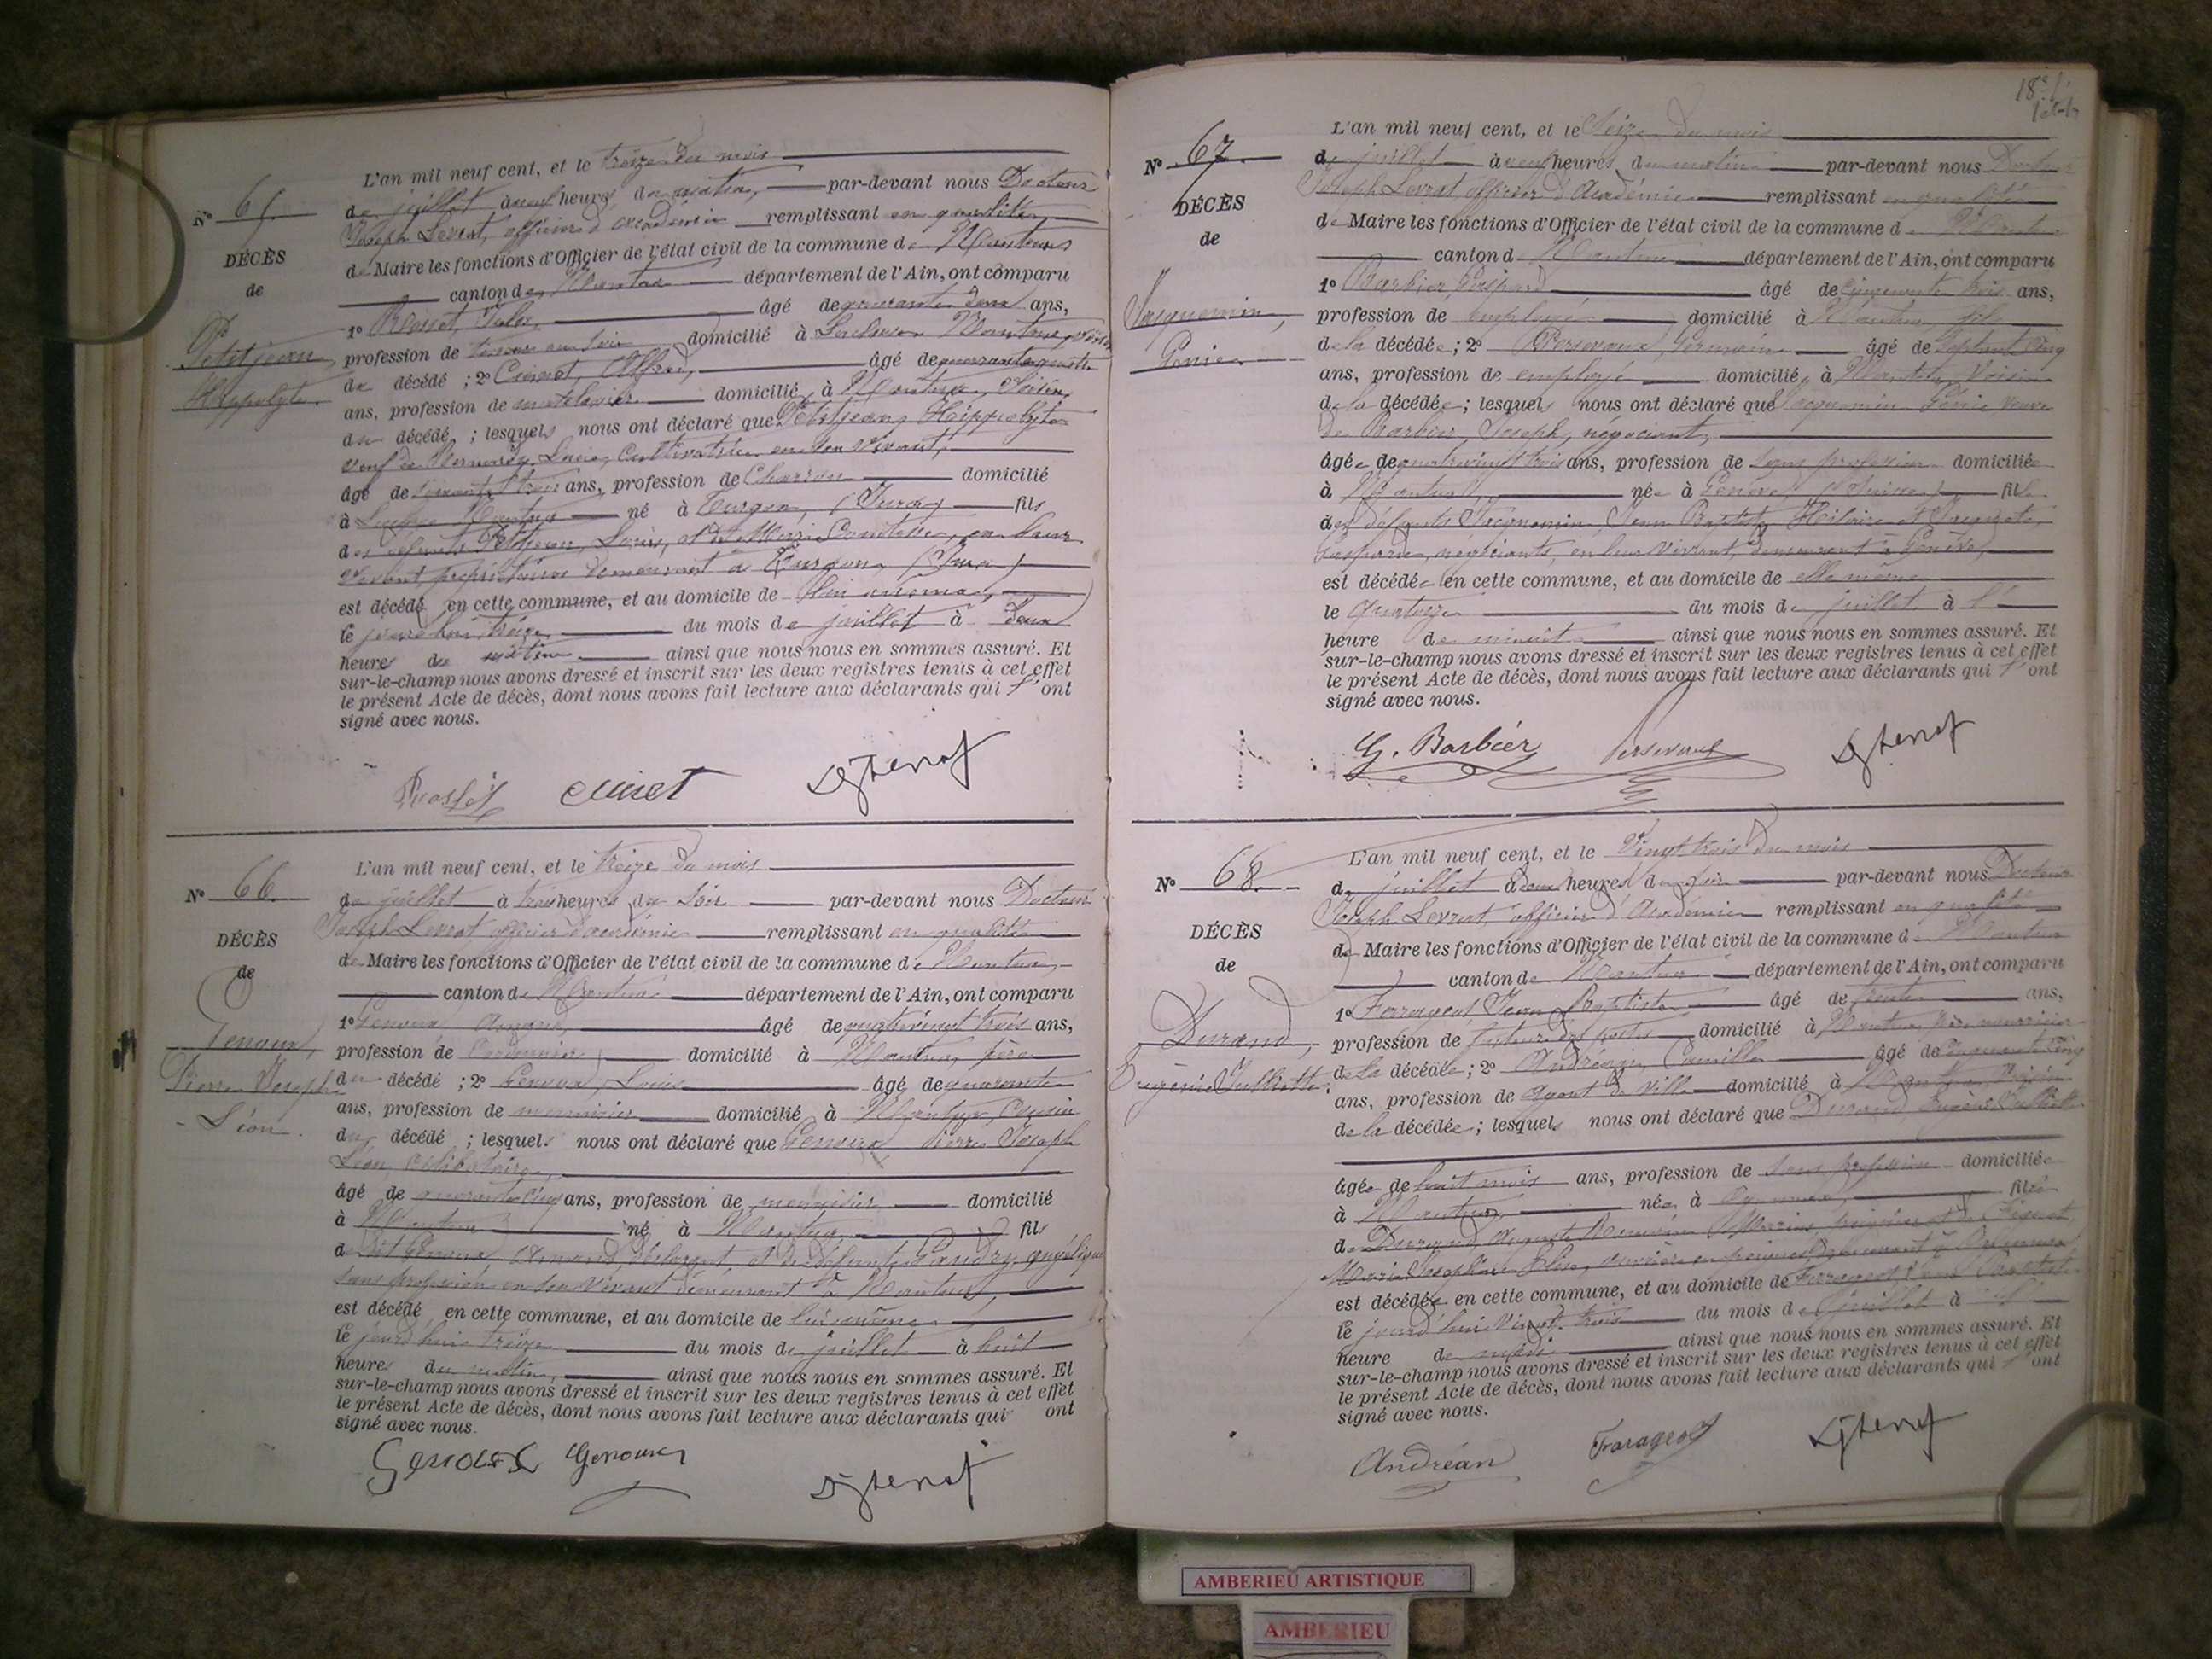 L'an mil neuf cent, et le treize du mois
N° 65.
de juillet à neuf heures du matin, par-devant nous Docteur
Joseph Levrat, officier d'académie remplissant en qualité
DÉCÈS
de Maire les fonctions d'Officier de l'état civil de la commune de Nantua
de
canton de Nantua département de l'Ain, ont comparu
1° Jules, âgé de quarante deux ans,
Petitjean,
Hippolyte.
profession de tourneur domicilié à Nantua, voisin
du décédé ; 2° Cuinet, Alfred, âgé de quarante quatre
ans, profession de matelassier domicilié à Nantua, voisin
du décédé ; lesquels nous ont déclaré que Petitjean, Hippolyte
veuf de cultivatrice en son vivant,
âgé de soixante trois ans, profession de Charron domicilié
à Nantua né à (Jura) fils
des défunts Petitjean, Louis, et de Marie en leur
vivant propriétaires demeurant à (Jura)
est décédé en cette commune, et au domicile de
le jourd'hui treize du mois de juillet à deux
heures du matin ainsi que nous nous en sommes assuré. Et
sur-le-champ nous avons dressé et inscrit sur les deux registres tenus à cet effet
le présent Acte de décès, dont nous avons fait lecture aux déclarants qui l'ont
signé avec nous.
Cuinet
L'an mil neuf cent, et le treize du mois
N° 66.
de juillet à trois heures du soir par-devant nous Docteur
Joseph Levrat officier d'académie remplissant en qualité
DÉCÈS
de Maire les fonctions d'Officier de l'état civil de la commune de Nantua
de
canton de Nantua département de l'Ain, ont comparu
1° Genoux âgé de quatrevingt trois ans,
Genoux,
Pierre Joseph
Léon.
profession de Cordonnier domicilié à Nantua, père
du décédé ; 2° Genoux, Louis âgé de quarante
ans, profession de menuisier domicilié à Nantua, Cousin
du décédé ; lesquels nous ont déclaré que Genoux Pierre Joseph
Léon, célibataire,
âgé de quarante cinq ans, profession de menuisier domicilié
à Nantua né à Nantua fils
de dit Genoux déclarant, et de défunte Angélique
sans profession en son vivant demeurant à Nantua,
est décédé en cette commune, et au domicile de lui même
le jourd'hui treize du mois de juillet à huit
heures du matin, ainsi que nous nous en sommes assuré. Et
sur-le-champ nous avons dressé et inscrit sur les deux registres tenus à cet effet
le présent Acte de décès, dont nous avons fait lecture aux déclarants qui ont
signé avec nous.
Genoux Genoux
L'an mil neuf cent, et le Seize du mois
N° 67.
de juillet à neuf heures du matin par-devant nous Docteur
Joseph Levrat officier d'Académie remplissant en qualité
DÉCÈS
de Maire les fonctions d'Officier de l'état civil de la commune de Nantua
de
canton de Nantua département de l'Ain, ont comparu
1° Barbier, Gaspard âgé de cinquante trois ans,
Jacquemin,
Génie.
profession de employé domicilié à Nantua, fils
de la décédée ; 2° Perseveaux, Germain âgé de Septante cinq
ans, profession de employé domicilié à Nantua, Voisin
de la décédée ; lesquels nous ont déclaré que Jacquemin Génie veuve
de Barbier, Joseph, négociant,
âgée de quatrevingt trois ans, profession de sans profession domiciliée
à Nantua, née à Genève, (Suisse) fille
des défunts Jacquemin, Jean Baptiste, Hilaire et
négociants, en leur vivant, demeurant à Genève,
est décédée en cette commune, et au domicile de elle même
le quatorze du mois de juillet à l'
heure de minuit ainsi que nous nous en sommes assuré. Et
sur-le-champ nous avons dressé et inscrit sur les deux registres tenus à cet effet
le présent Acte de décès, dont nous avons fait lecture aux déclarants qui l'ont
signé avec nous.
G. Barbier
L'an mil neuf cent, et le Vingt trois du mois
N° 68.
de juillet à deux heures du soir par-devant nous Docteur
Joseph Levrat, officier d'Académie remplissant en qualité
DÉCÈS
de Maire les fonctions d'Officier de l'état civil de la commune de Nantua
de
canton de Nantua département de l'Ain, ont comparu
1° Jean Baptiste âgé de trente ans,
Durand,
Eugénie Julliette.
profession de facteur des postes domicilié à Nantua, père nourricier
de la décédée ; 2° Andréan, Camille âgé de cinquante cinq
ans, profession de agent de Ville domicilié à Nantua, Voisin
de la décédée ; lesquels nous ont déclaré que Durand Eugénie Julliette
âgée de huit mois ans, profession de sans profession domiciliée
à Nantua, née à Oyonnax, fille
de Durand, Auguste et de
Marie Joséphine Elise, ouvrière en peignes demeurant à Oyonnax
est décédée en cette commune, et au domicile de Jean Baptiste
le jourd'hui Vingt trois du mois de juillet à
heure de midi ainsi que nous nous en sommes assuré. Et
sur-le-champ nous avons dressé et inscrit sur les deux registres tenus à cet effet
le présent Acte de décès, dont nous avons fait lecture aux déclarants qui l'ont
signé avec nous.
Andréan
AMBERIEU ARTISTIQUE
AMBERIEU